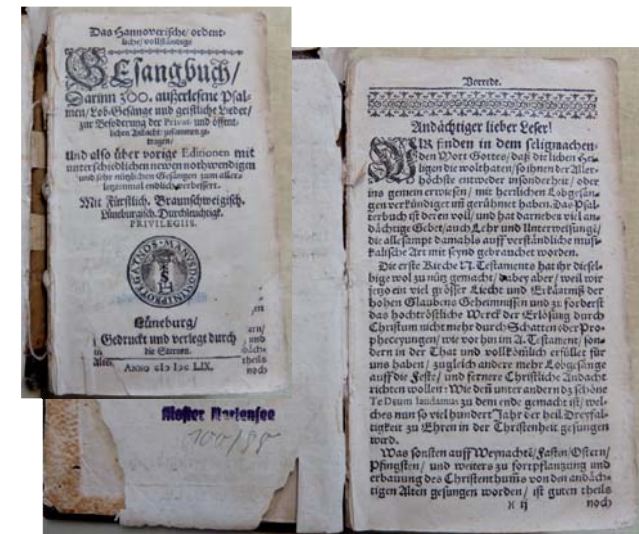 Das Hannoverische/ ordent-
liche/ vollständige
GEsangbuch/
Darinn 300. außerlesene Psal-
men/ Lob-Gesänge und geistliche Lieder/
zur Beföderung der Privat- und öffent-
lichen Andacht zusammen ge-
tragen/
Und also über vorige Editionen mit
unterschiedlichen newen nothwendigen
und sehr nützlichen Gesängen zum aller-
letztenmal endlich verbessert.
Mit Fürstlich. Braunschweigisch.
Lüneburgisch. Durchleuchtigk.
PRIVILEGIIS.
Lüneburg/
Gedruckt und verlegt durch
die Sternen.
ANNO cIↃ IↃc LIX.
Kloster Mariensee
100/88
Vorrede.
Andächtiger lieber Leser!
WIR finden in dem seligmachen-
den Wort Gottes/ daß die lieben Hei-
ligen die wolthaten/ so ihnen der Aller-
höchste entweder insonderheit/ oder
ins gemein erwiesen/ mit herrlichen Lobgesän-
gen verkündiget uñ gerühmet haben. Das Psal-
terbuch ist deren voll/ und hat darnebẽ viel an-
dächtige Gebet/ auch Lehr und Unterweisunge/
die allesampt damahls auff verständliche musi-
kalische Art mit seynd gebrauchet worden.
Die erste Kirche N. Testaments hat ihr diesel-
bige wol zu nütz gemacht/ dabey aber/ weil wir
jetzo ein viel grösser Liecht und Erkäntniß der
hohen Glaubens Geheimnissen und zu forderst
das hochtröstliche Werck der Erlösung durch
Christum nicht mehr durch Schatten oder Pro-
pheceyungen/ wie vor him A. Testament/ son-
dern in der That und vollkõmlich erfüllet für
uns haben/ zugleich andere mehr Lobgesänge
auff die Feste/ und fernere Christliche Andacht
richten wollen: Wie deñ unter andern dz schöne
Te Deum laudamus zu dem ende gemacht ist/ wel-
ches nun so viel hundert Jahr der heil. Dreyfal-
tigkeit zu Ehren in der Christenheit gesungen
wird.
Was sonsten auff Weynachtẽ/ Fasten/ Ostern/
Pfingsten/ und weiters zu fortpflanzung und
erbauung des Christenthum̃s von den andäch-
tigen Alten gesungen worden/ ist guten theils
)( ij noch